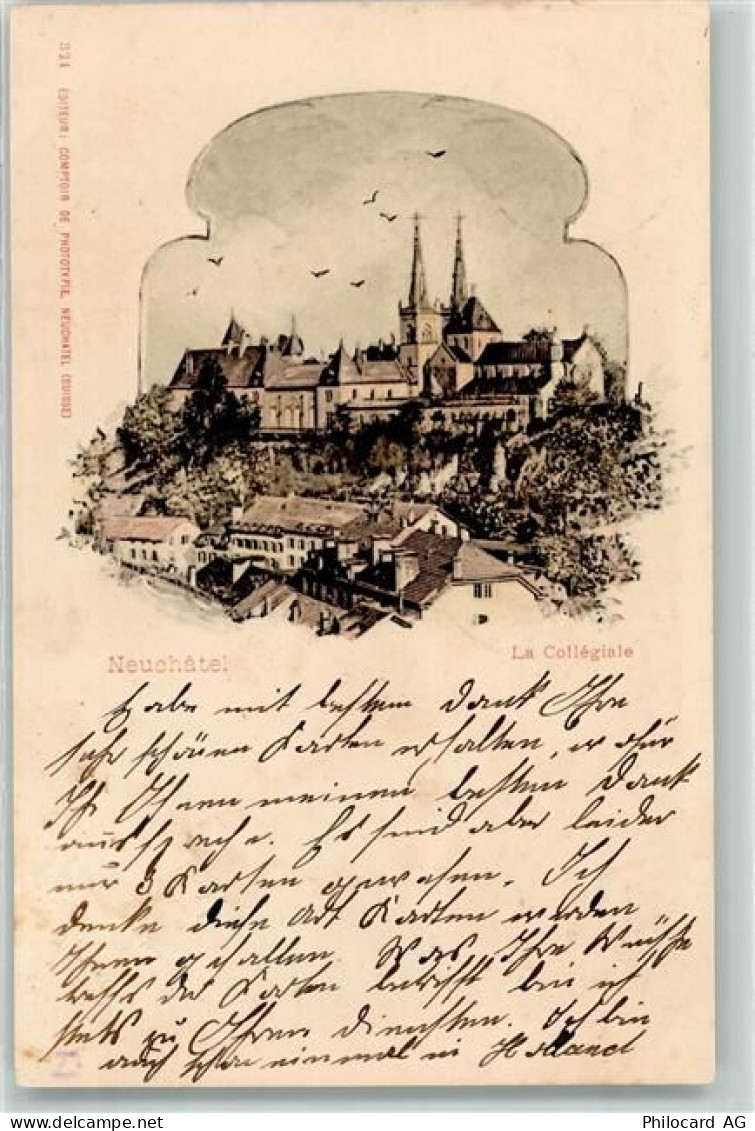 321 ÉDITEUR: COMPTOIR DE PHOTOTYPIE, NEUCHATEL (SUISSE)
Neuchâtel
La Collégiale
Habe mit bestem Dank Ihre
sehr schönen Karten erhalten, wofür
ich Ihnen meinen besten Dank
ausspreche. Es sind aber leider
nur 3 Karten gewesen. Ich
denke diese Art Karten werden
Ihnen gefallen. Was Ihre Wünsche
der Karten betrifft bin ich
stets zu Ihren Diensten. Ich bin
auch schon einmal in Holland
Philocard AG